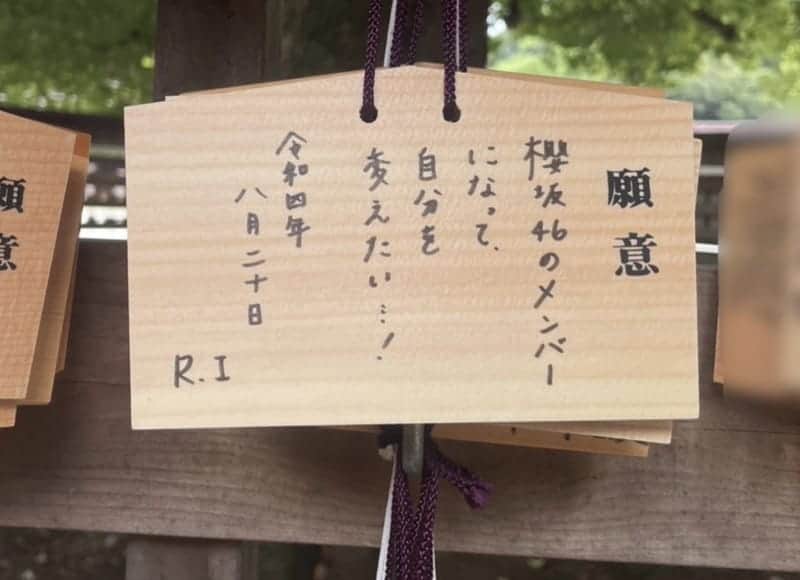 願意
櫻坂46のメンバー
になって、
自分を
変えたい…!
令和四年
八月二十日
R.I
願意